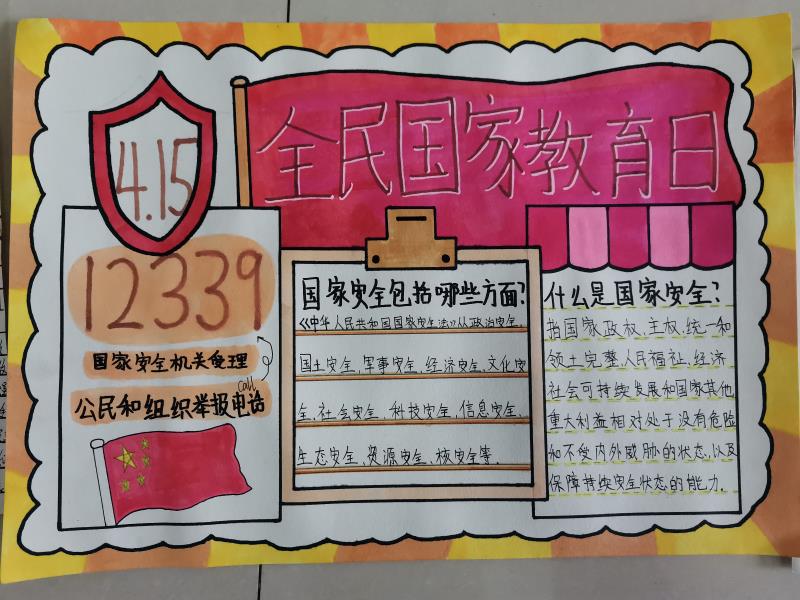 全民国家教育日
4.15
12339
国家安全机关受理
call
公民和组织举报电话
国家安全包括哪些方面?
《中华人民共和国国家安全法》从政治安全、
国土安全、军事安全、经济安全、文化安
全、社会安全、科技安全、信息安全、
生态安全、资源安全、核安全等。
什么是国家安全?
指国家政权、主权、统一和
领土完整、人民福祉、经济
社会可持续发展和国家其他
重大利益相对处于没有危险
和不受内外威胁的状态,以及
保障持续安全状态的能力。